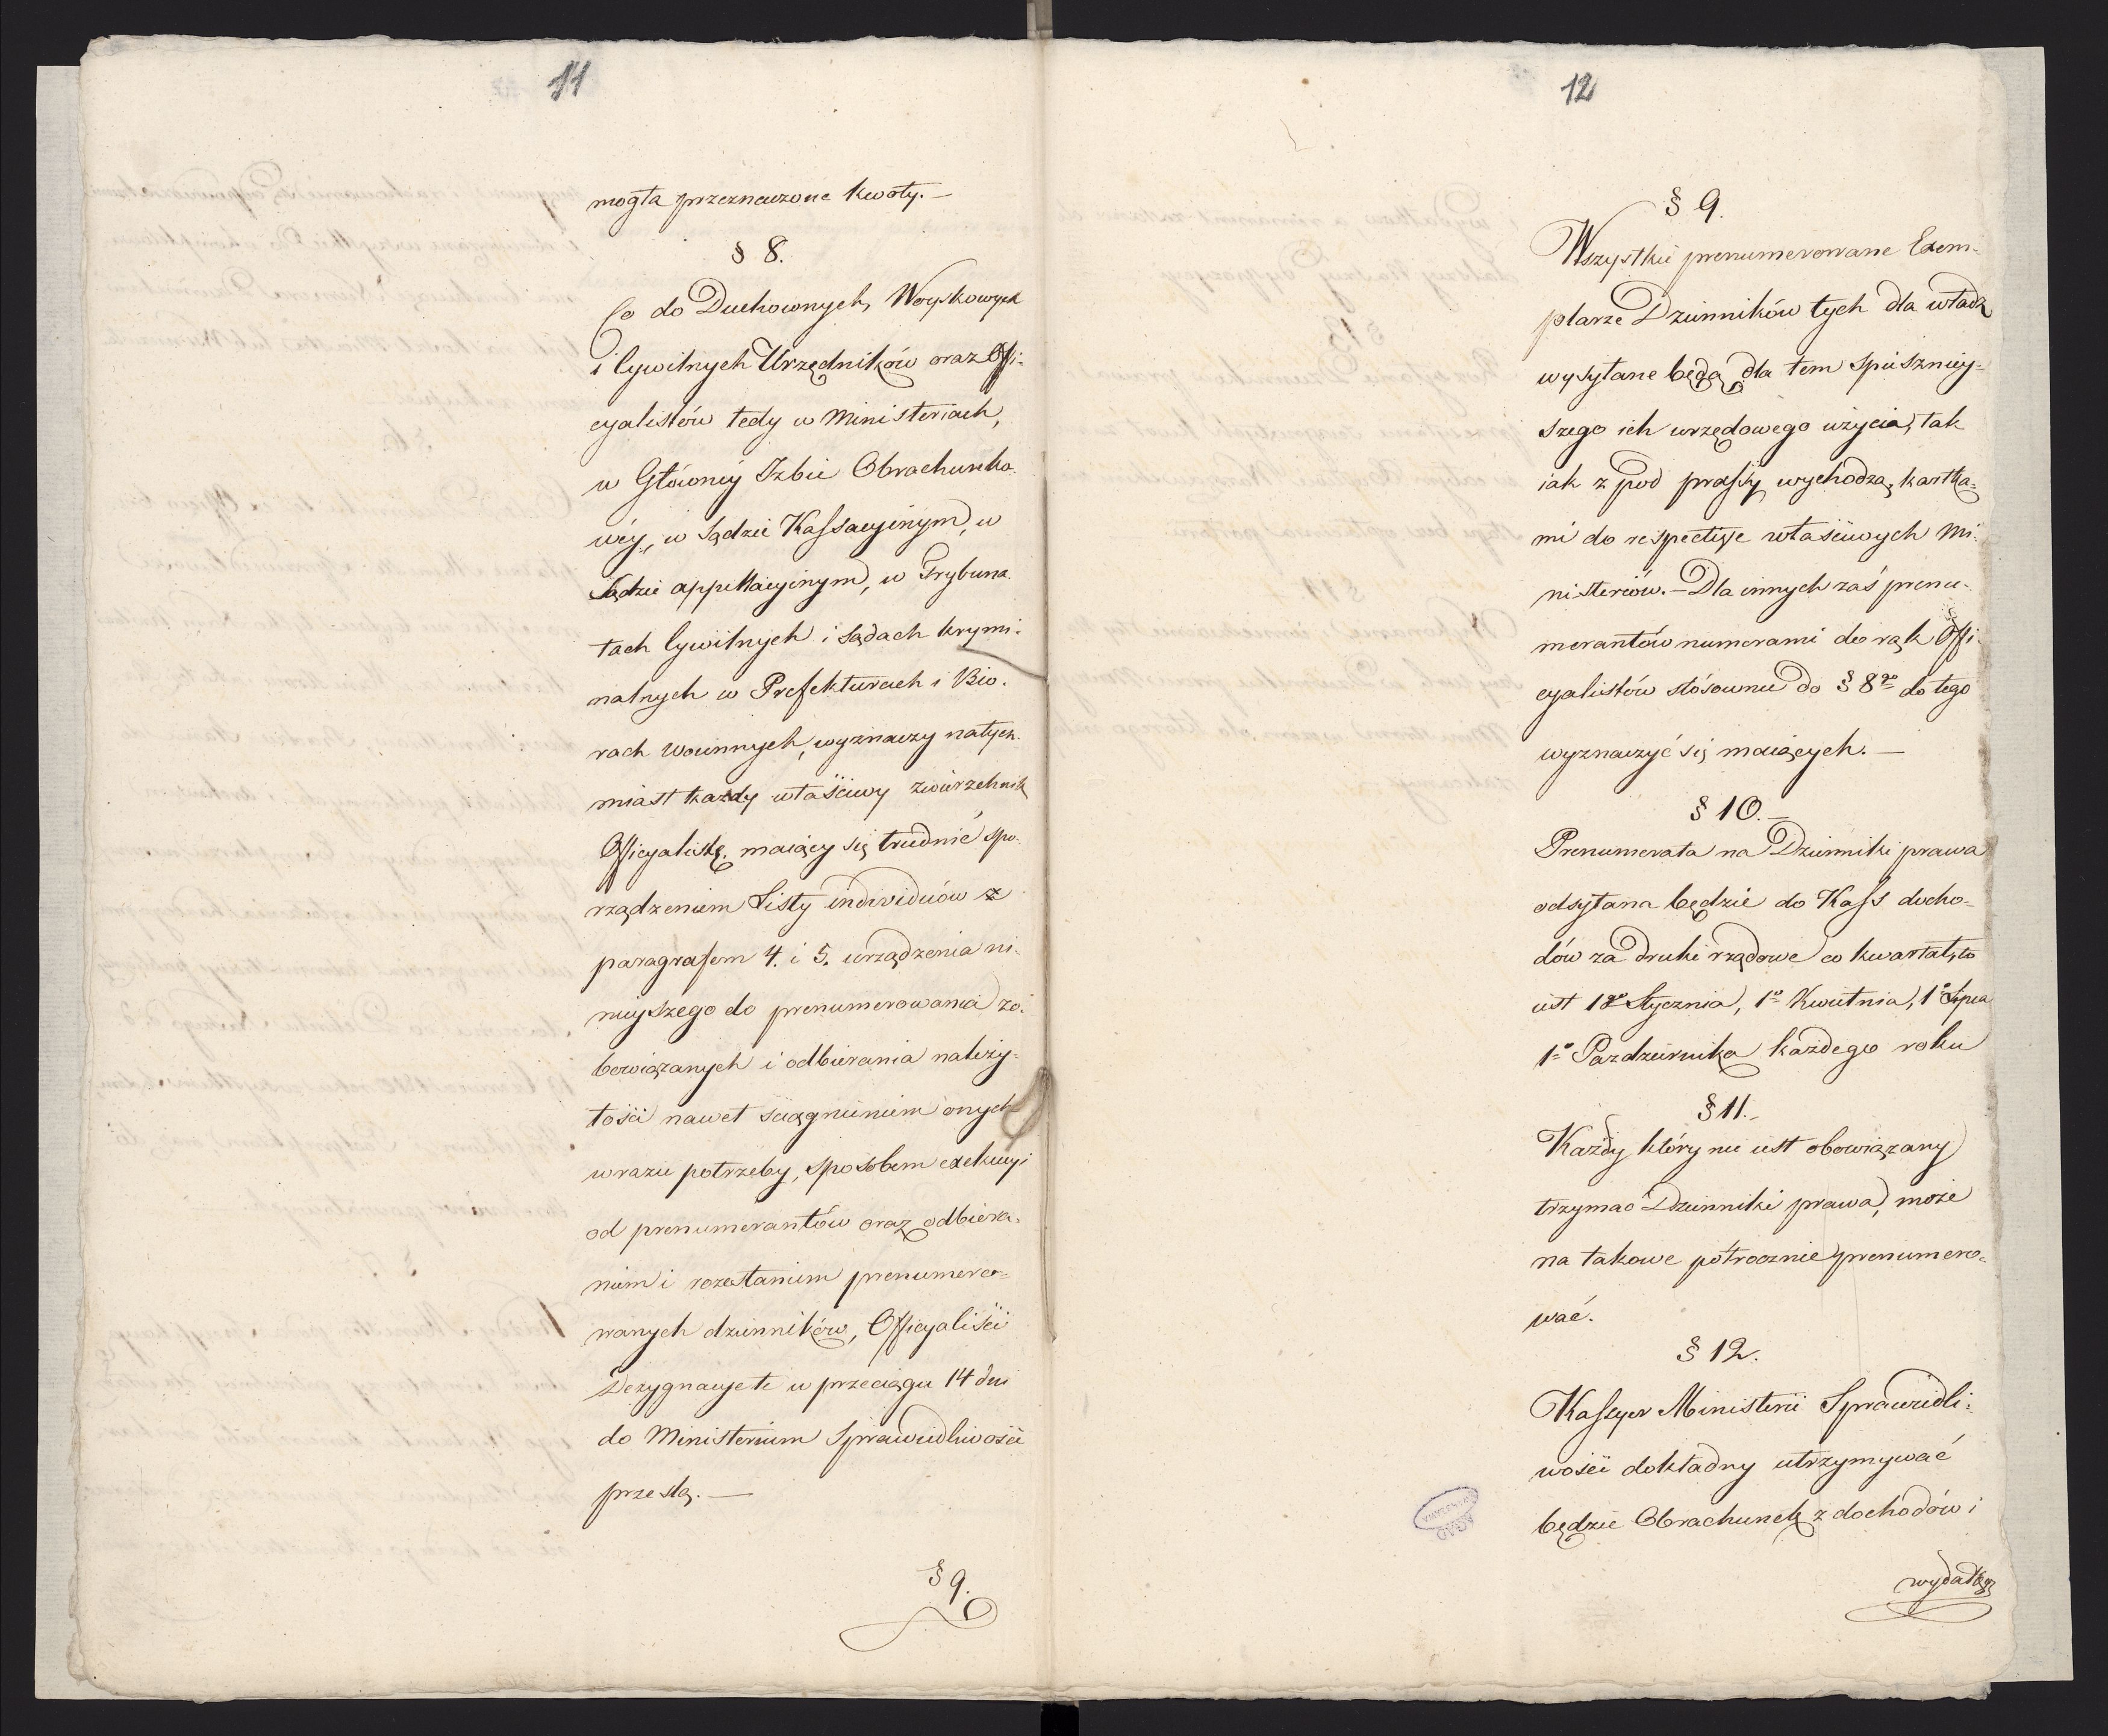 11
mogła przeznaczone kwoty. —
§ 8.
Co do Duchownych, Woyskowych
i Cywilnych Urzędników oraz Offi-
cyalistów tedy w Ministeriach,
w Główney Izbie Obrachunko-
wéy, w Sądzie Kassacyinym, w
Sądzie appellacyinym, w Trybuna-
łach Cywilnych i Sądach krymi-
nalnych w Prefekturach i Biu-
rach woiennych, wyznaczy natych-
miast każdy właściwy zwierzchnik
Officyalistę, maiący się trudnić spo-
rządzeniem Listy individuów z
paragrafem 4. i 5. urządzenia ni-
nieyszego do prenumerowania zo-
bowiązanych i odbierania należy-
tości nawet ściągnieniem onych
w razie potrzeby, sposobem exekucyi
od prenumerantów oraz odbiera-
niem i rozesłaniem prenumero-
wanych dzienników, Officyaliści
Dezygnacye te w przeciągu 14 dni
do Ministerium Sprawiedliwości
prześlą. —
§ 9.
12
§ 9.
Wszystkie prenumerowane Exem-
plarze Dzienników tych dla władz
wysyłane będą dla tem spieszniey-
szego ich urzędowego użycia, tak
iak z pod prassy wychodzą, kartka-
mi do respective właściwych Mi-
nisteriów. — Dla innych zaś prenu-
merantów numerami do rąk Offi-
cyalistów stósownie do § 8go do tego
wyznaczyć się maiących. —
§ 10. —
Prenumerata na Dzienniki prawa
odsyłana będzie do Kass docho-
dów za druki rządowe co kwartał, to
iest 1go Stycznia, 1o Kwietnia, 1o Lipca
1o Pazdziernika każdego roku
§ 11. —
Każdy który nie iest obowiązany
trzymać Dzienniki prawa, może
na takowe półrocznie prenumero-
wać.
§ 12.
Kassyer Ministerii Sprawiedli-
wości dokładny utrzymywać
będzie Obrachunek z dochodów i
wydatków
AGAD
WARSZAWA